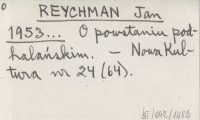 o
REYCHMAN Jan
1953... O powstaniu pod-
halańskim. – Nowa Kul-
tura nr 24 (64).